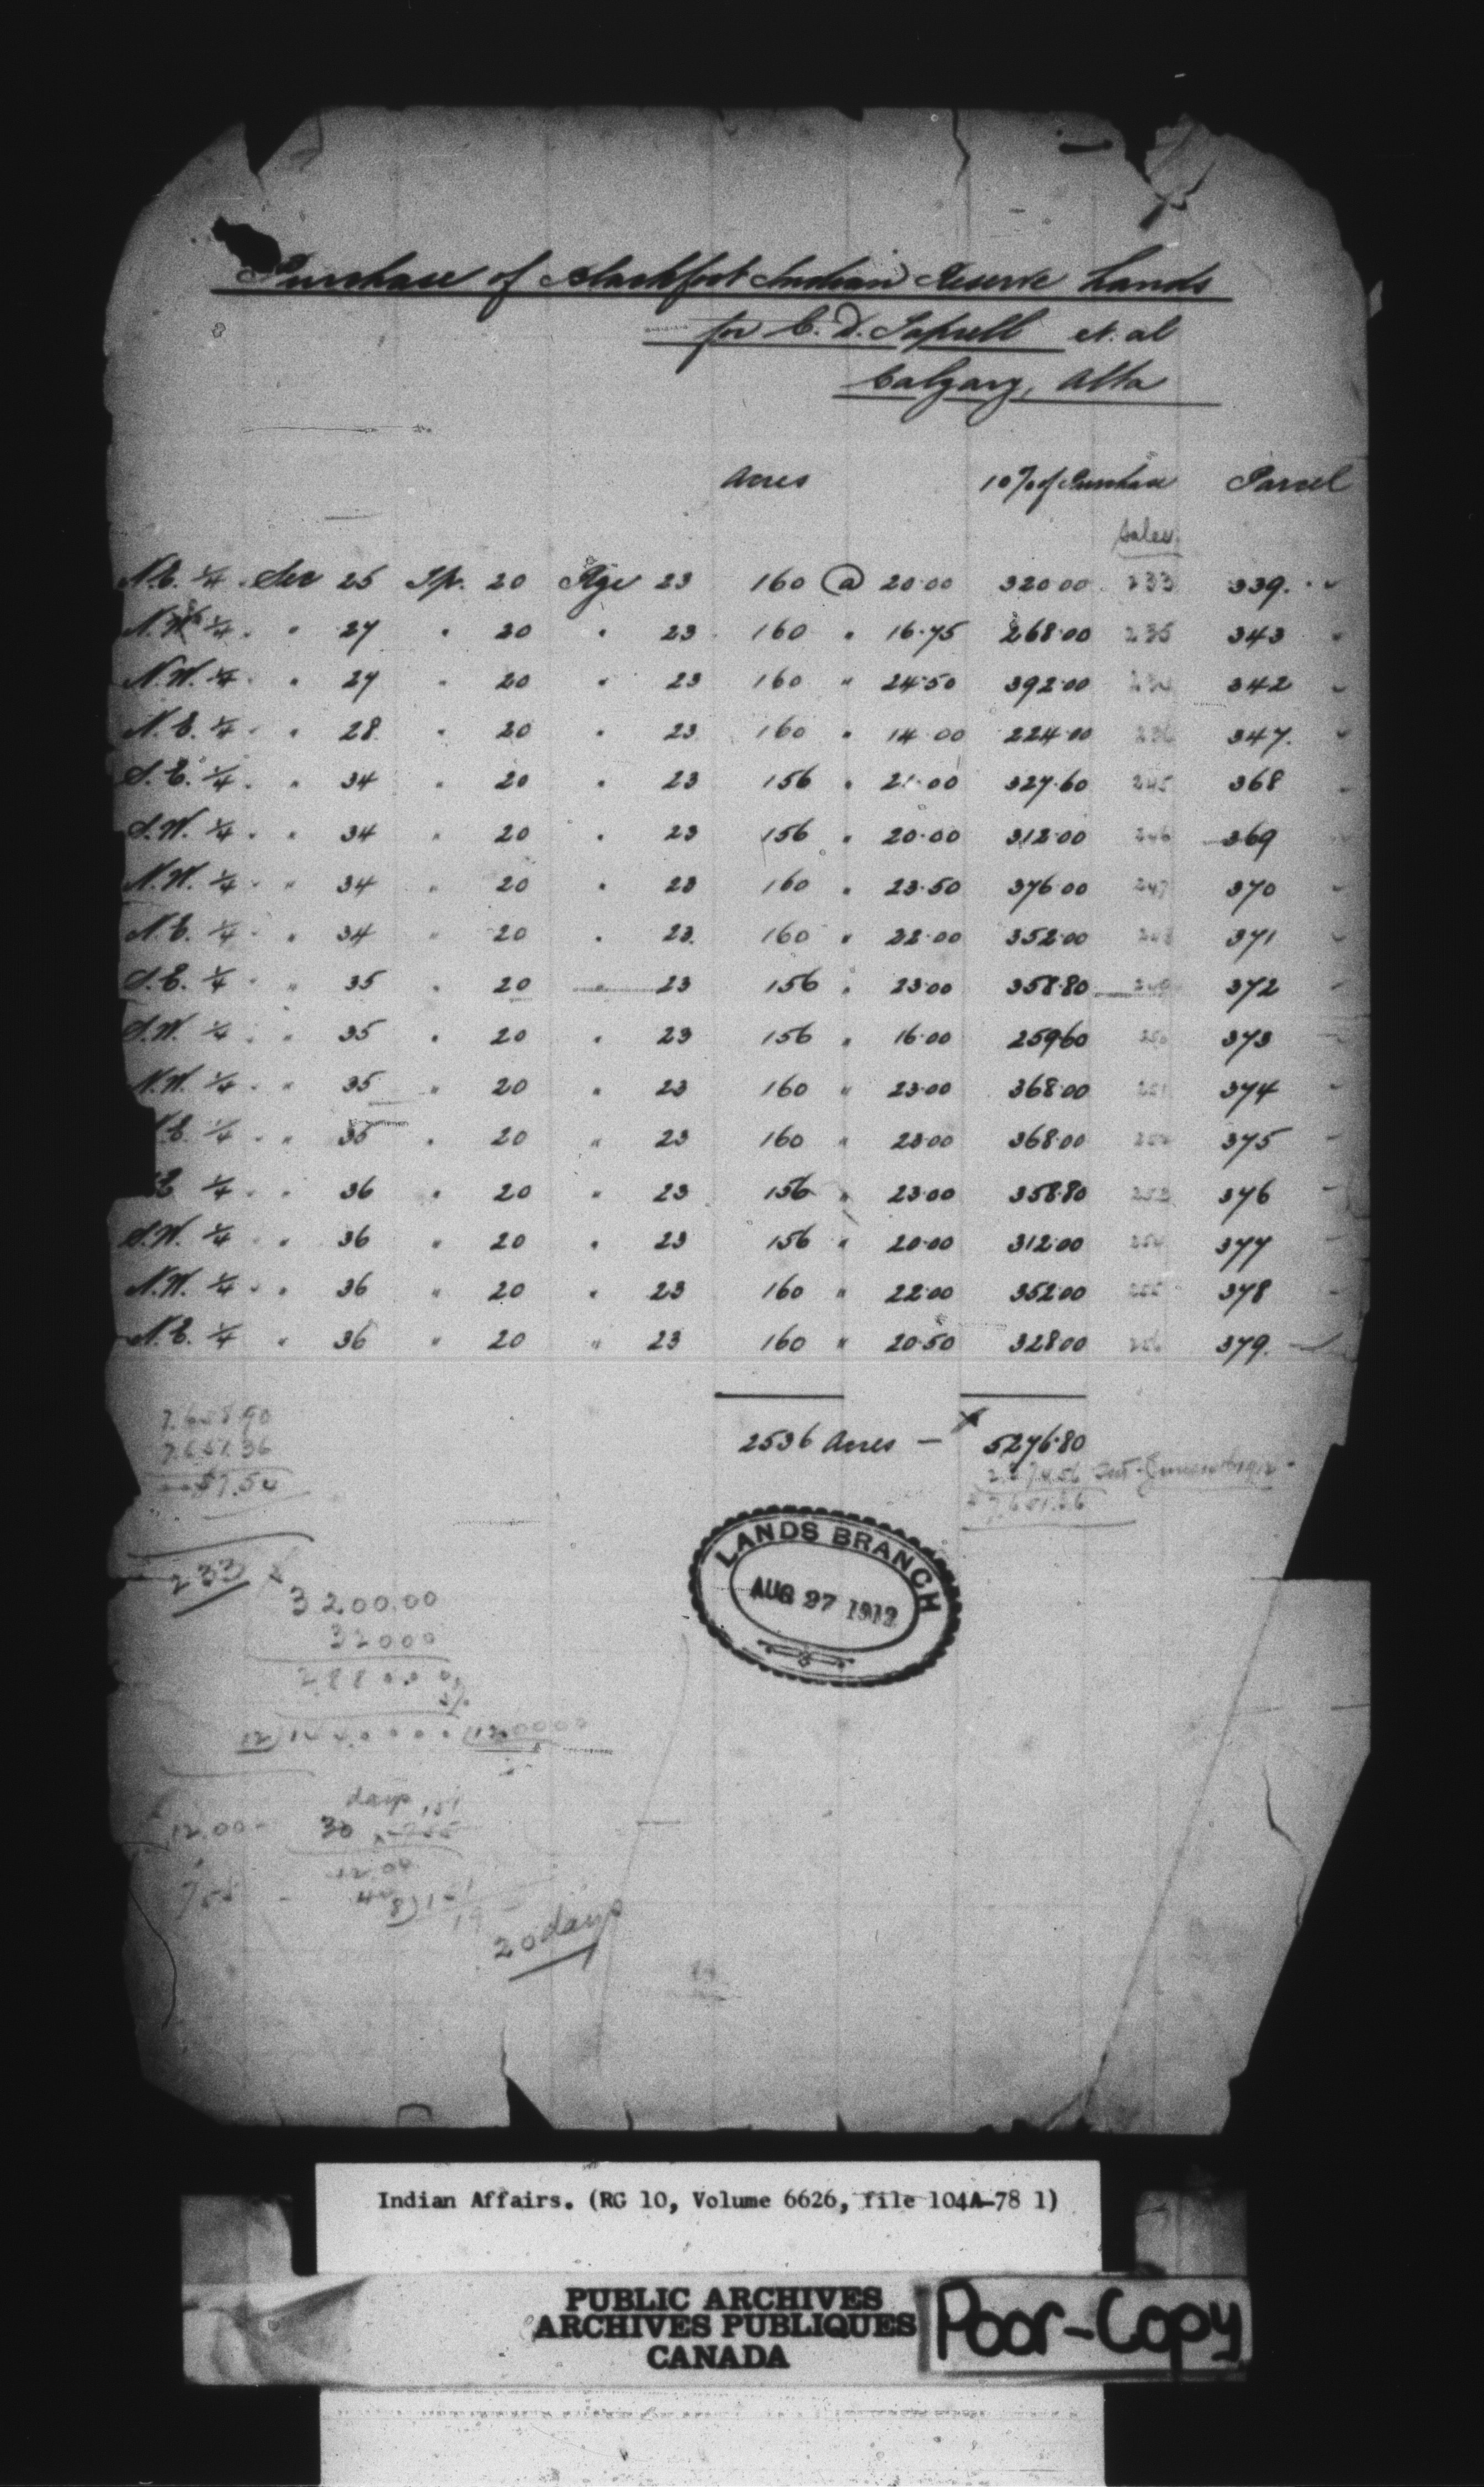 Purchase of Blackfoot Indian Reserve Lands
for C. D. et. al
Calgary, Alta
Acres 10% of Purchase Parcel
Sales
N.E. 1/4 Sec 25 Tp. 20 Rge 23 160 @ 20.00 320.00 233 339.
1/4 " 27 " 20 " 23 160 " 16.75 268.00 235 343
N.W. 1/4 " 27 " 20 " 23 160 " 24.50 392.00 342
N.E. 1/4 " 28 " 20 " 23 160 " 14.00 224.00 347.
S.E. 1/4 " 34 " 20 " 23 156 " 21.00 327.60 245 368
S.W. 1/4 " 34 " 20 " 23 156 " 20.00 312.00 246 369
N.W. 1/4 " 34 " 20 " 23 160 " 23.50 376.00 247 370
N.E. 1/4 " 34 " 20 " 23 160 " 22.00 352.00 248 371
S.E. 1/4 " 35 " 20 " 23 156 " 23.00 358.80 249 372
S.W. 1/4 " 35 " 20 " 23 156 " 16.00 259.60 250 373
N.W. 1/4 " 35 " 20 " 23 160 " 23.00 368.00 251 374
E. 1/4 " 35 " 20 " 23 160 " 23.00 368.00 252 375
E 1/4 " 36 " 20 " 23 156 " 23.00 358.80 253 376
S.W. 1/4 " 36 " 20 " 23 156 " 20.00 312.00 254 377
N.W. 1/4 " 36 " 20 " 23 160 " 22.00 352.00 255 378
N.E. 1/4 " 36 " 20 " 23 160 " 20.50 328.00 256 379.
2536 Acres — 5276.80
57.50
233
3200.00
32000
12
days
12.00 30
12.00
20 days
LANDS BRANCH
AUG 27 1912
Indian Affairs. (RG 10, Volume 6626, file 104A-78 1)
PUBLIC ARCHIVES
ARCHIVES PUBLIQUES
CANADA
Poor-Copy